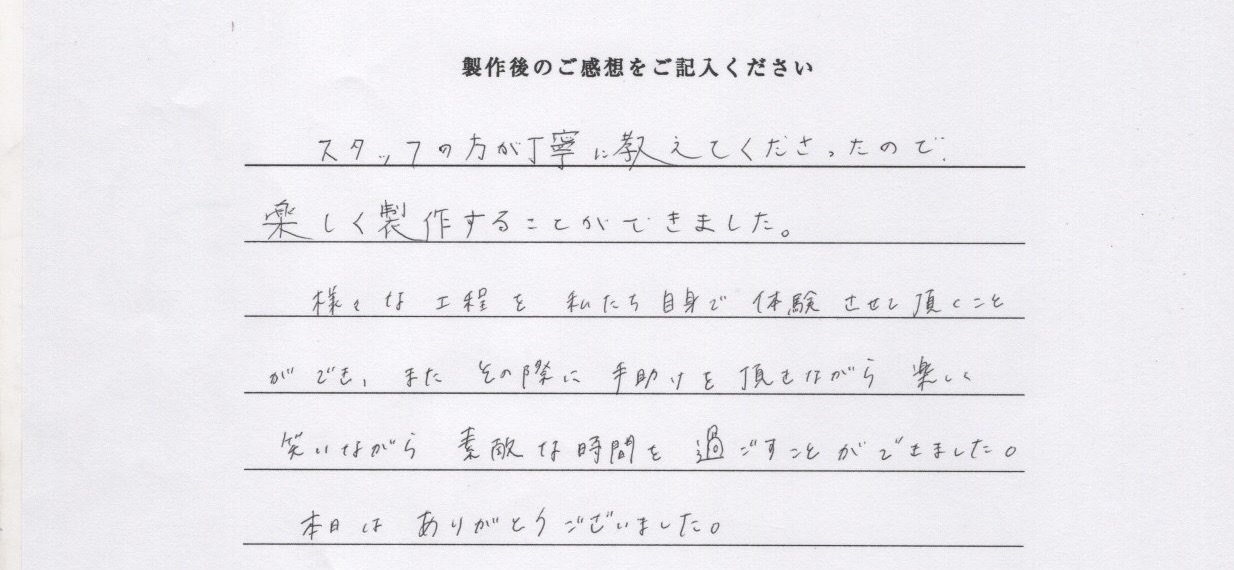 製作後のご感想をご記入ください
スタッフの方が丁寧に教えてくださったので、
楽しく製作することができました。
様々な工程を私たち自身で体験させて頂くこと
ができ、またその際に手助けを頂きながら楽しく
笑いながら素敵な時間を過ごすことができました。
本日はありがとうございました。